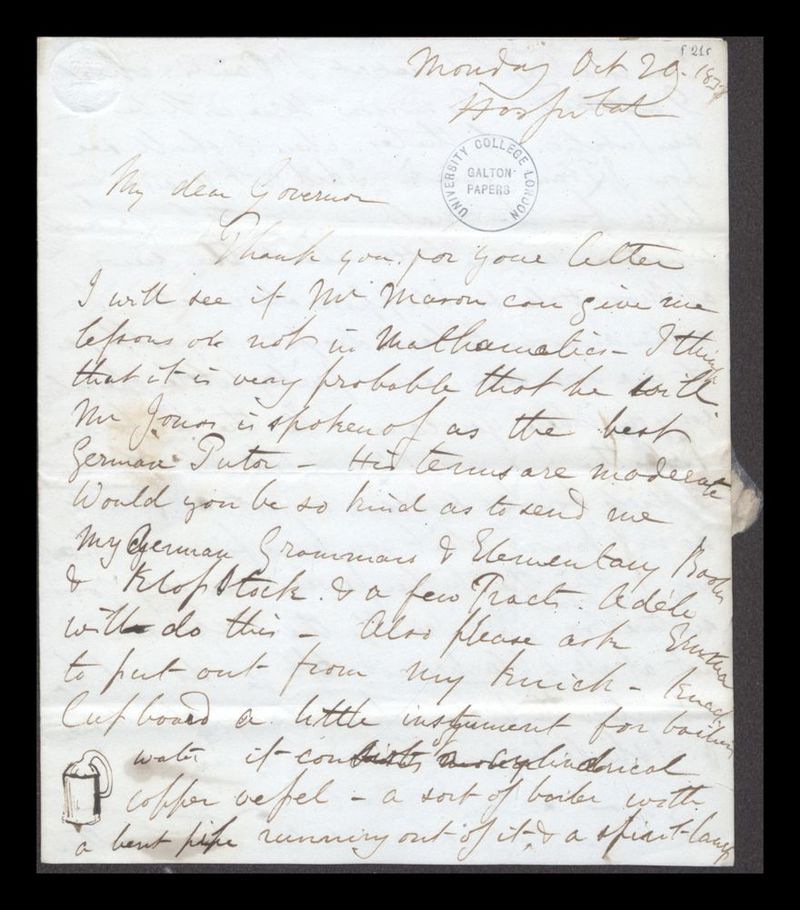 Monday Oct 29. 1838
Hospital
UNIVERSITY COLLEGE LONDON
GALTON
PAPERS
My dear Governor
Thank you for your letter
I will see if Mr Mason can give me
lessons or not in Mathematics - I think
that it is very probable that he will
Mr Jonas is spoken of as the best
German Tutor - His terms are moderate
Would you be so kind as to send me
My German Grammars & Elementary Books
& Klopstock. & a few Tracts. Adèle
will do this - Also please ask
to put out from my knick - knack
Cupboard a little instrument for boiling
water it consists of a cylindrical
copper vessel - a sort of boiler with
a bent pipe running out of it, & a spirit-lamp